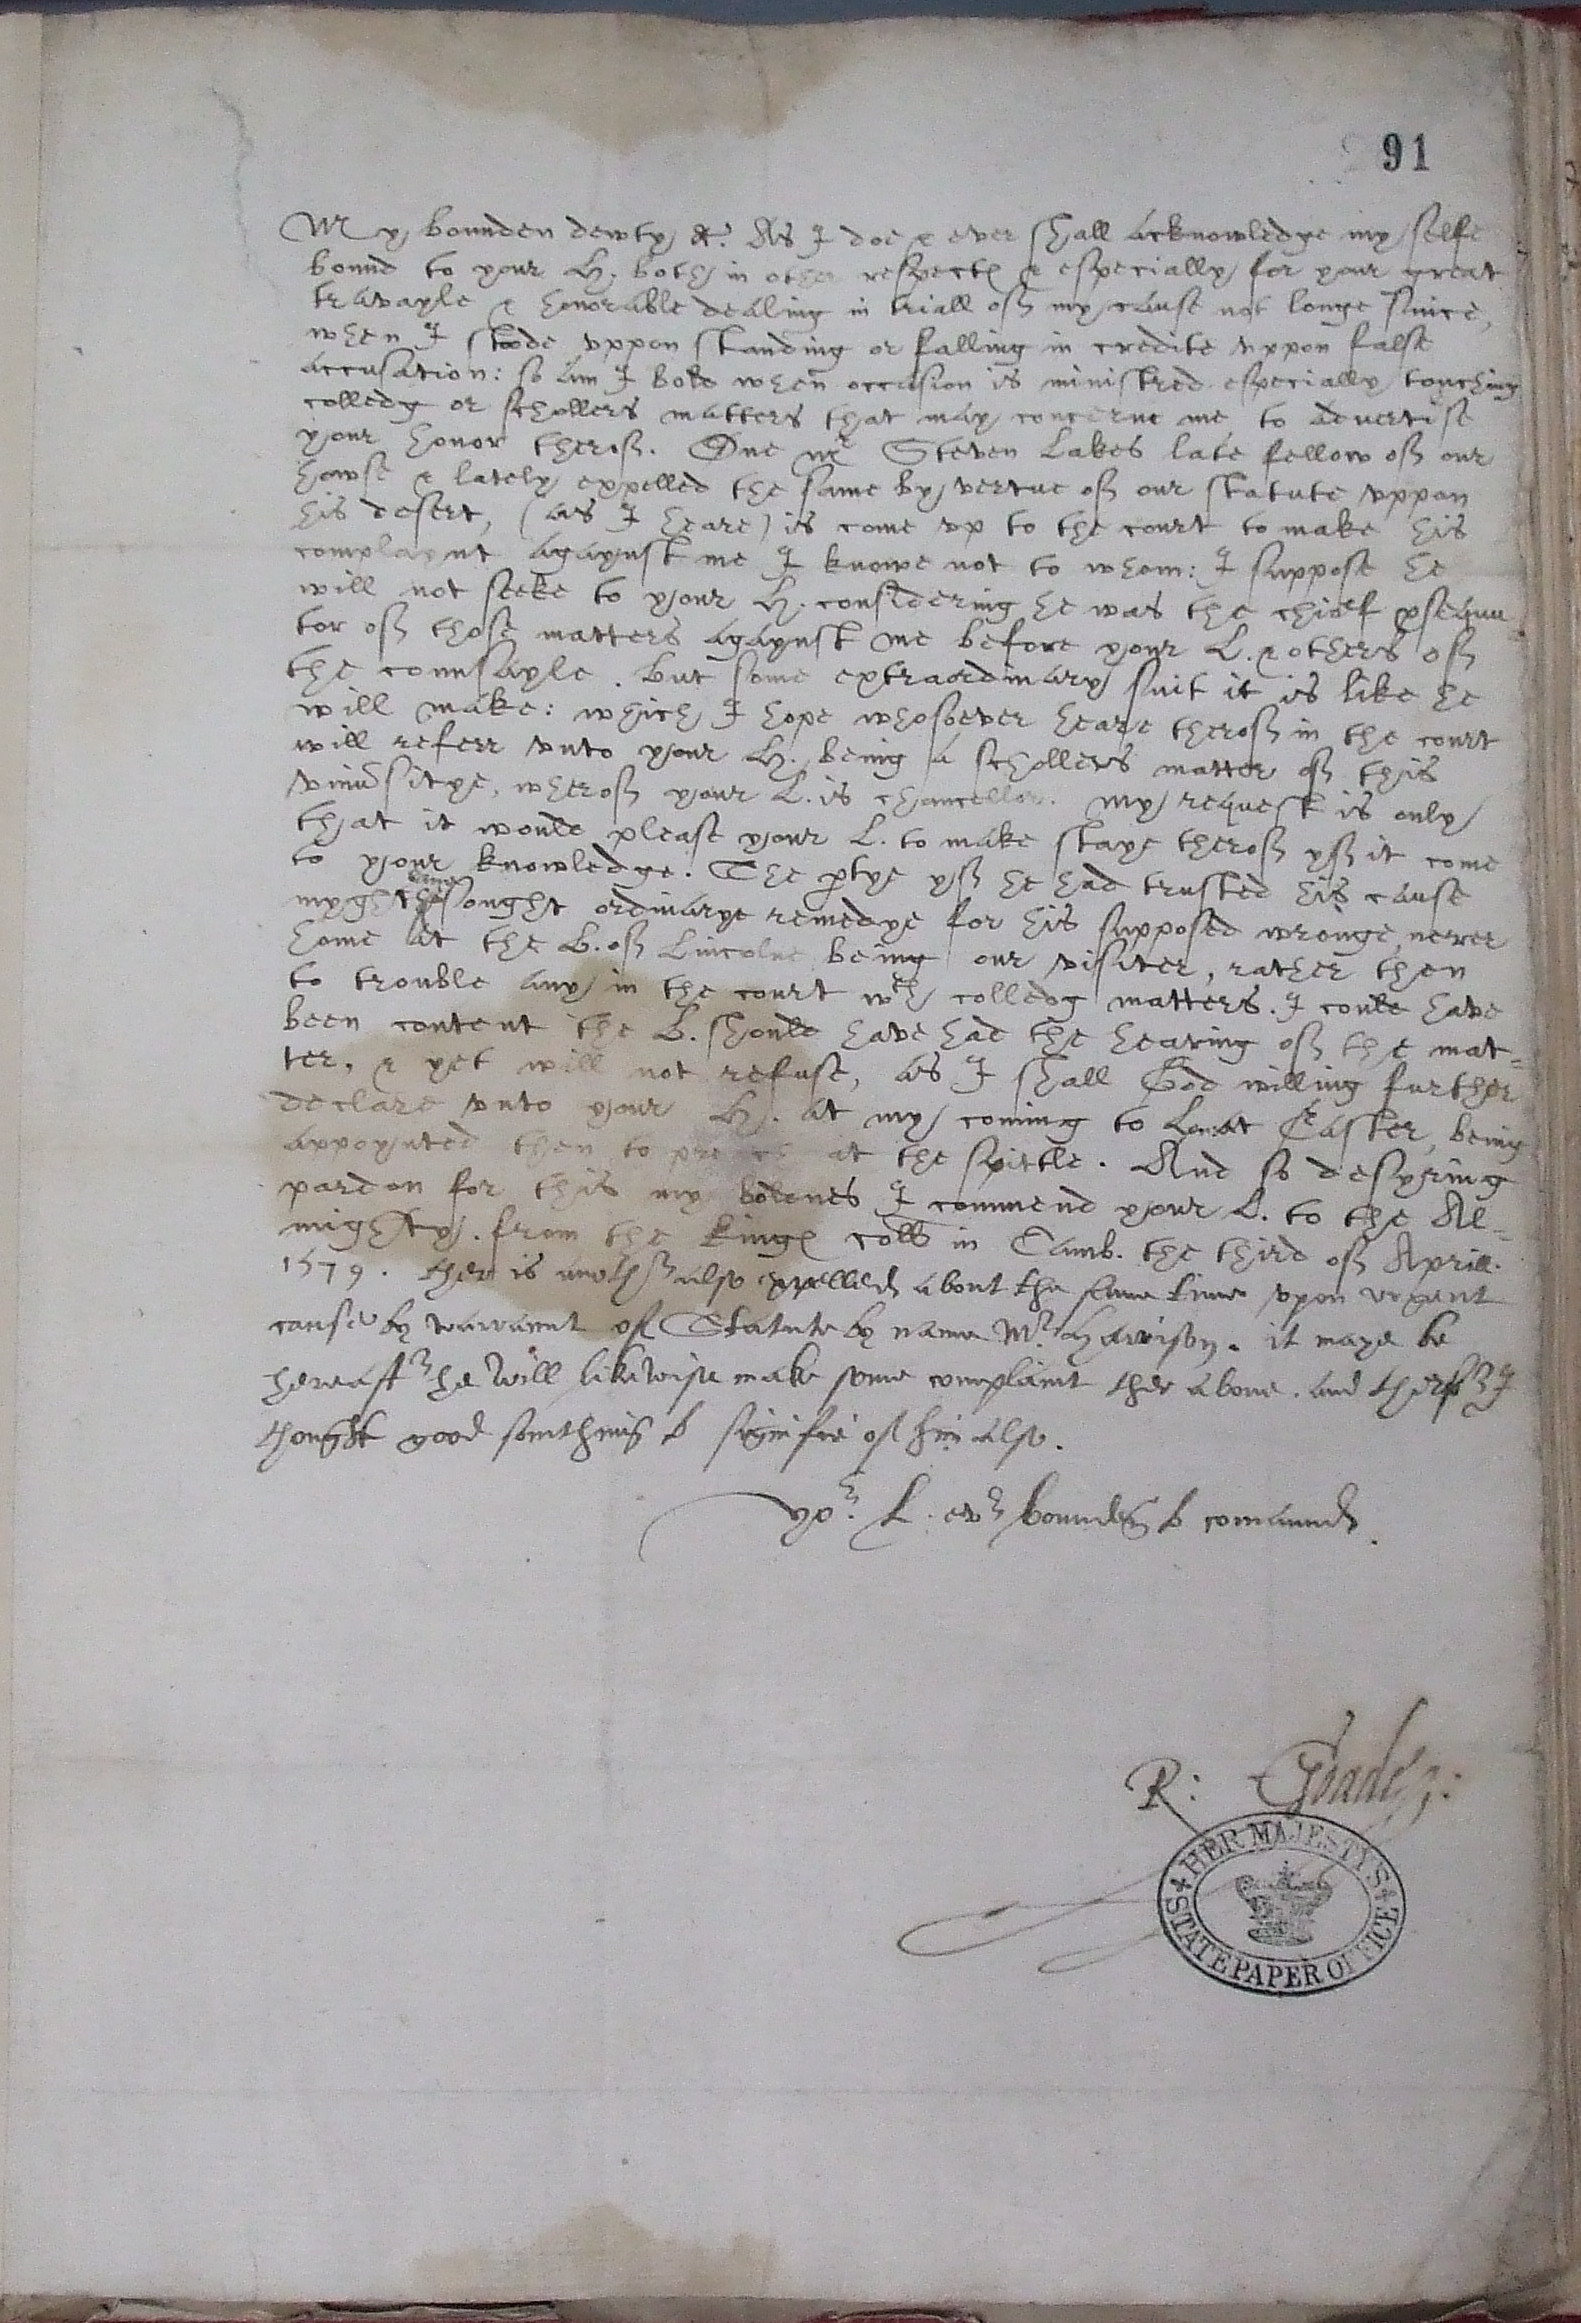 91
My bounden dewty &c. As I doe & ever shall acknowledge my selfe
bound to your H. both in other respectes & especially for your great
travayle & honorable dealing in triall off my cause not longe since,
when I stoode vppon standing or falling in credite vppon false
accusation: so am I bold when occasion is ministred especially touching
colledg or schollers matters that may concerne me to advertise
your honor theroff. One Mr Steven Lakes late fellow off our
howse & lately expelled the same by vertue off our statute vppon
his desert, (as I heare) is come vp to the court to make his
complaynt agaynst me I knowe not to whom: I suppose he
will not seeke to your H. considering he was the chief psequu-
tor off those matters agaynst me before your L. & others off
the counsayle. But some extraordinary suit it is like he
will make: which I hope whosoever heare theroff in the court
will referr vnto your H. being a schollers matter off this
vniversitye, wheroff your L. is chancellor. My request is only
that it would please your L. to make staye theroff yff it come
to your knowledge. The ptye yff he had trusted his cause
myght have sought ordinarye remedye for his supposed wronge nerer
home at the B. off Lincolne being our visiter, rather then
to trouble any in the court wth colledg matters. I could have
been content the B. should have had the hearing off the mat-
ter, & yet will not refuse, as I shall God willing further
declare vnto your H. at my coming to L. at Easter, being
appoynted then to preach at the spittle. And so desyring
pardon for this my boldnes I commend your L. to the Al-
mighty. from the kinges coll in Camb. the third off Aprill.
1579. ther is another also expelled about the same time vpon vrgent
cause by warrant of Statute by name Mr Harrison. it maye be
hereafter he will likewise make some complaint ther above. and therfor I
thought good somthing to signifie of him also.
yor. L. ever bounden to comaund.
R: Goade:
HER MAJESTY'S
STATE PAPER OFFICE